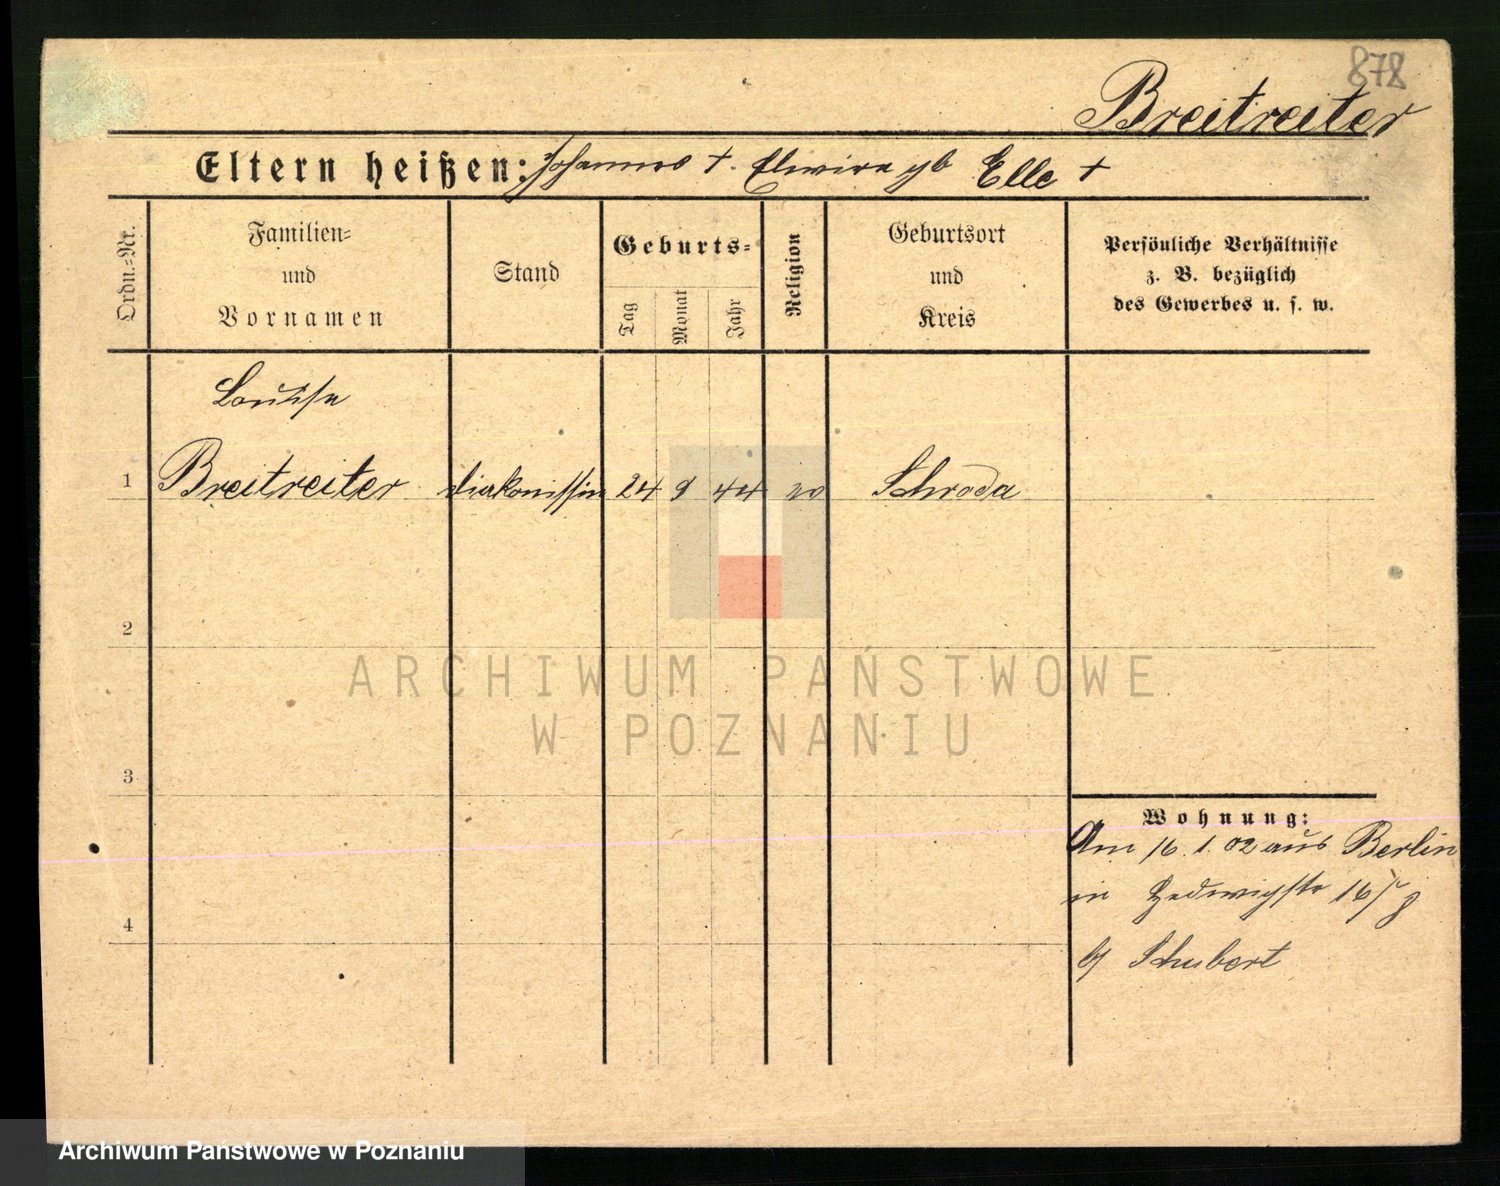 878
Breitreiter
Eltern heißen: Johannes †. Elwira gb Elle †
Ordn.-Nr.
Familien-
und
Vornamen
Stand
Geburts-
Tag
Monat
Jahr
Religion
Geburtsort
und
Kreis
Persönliche Verhältnisse
z. B. bezüglich
des Gewerbes u. s. w.
Louise
1 Breitreiter diakonissin 24 9 44 Schroda
2
ARCHIWUM PAŃSTWOWE
W POZNANIU
3
Wohnung:
Am 16.1.02 aus Berlin
in Hedwigstr 16/
4
b/ Schubert
Archiwum Państwowe w Poznaniu